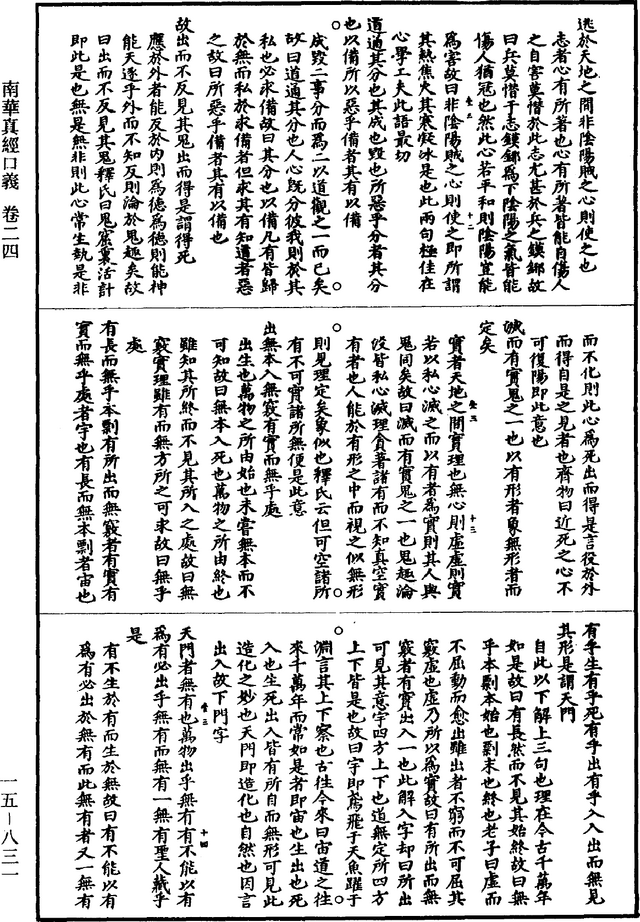 南華真經口義 卷二四
一五–八三一
逃於天地之間非陰陽賊之心則使之也
志者心有所著也心有所著皆能自傷人
之自害莫憯於此志尤甚於兵之鏌鋣故
曰兵莫憯于志鏌鋣為下陰陽之氣皆能
傷人猶寇也然此心若平和則陰陽豈能
為害故曰非陰陽賊之心則使之即所謂
其熱焦火其寒凝冰是也此兩句極佳在
心學工夫此語最切
道通其分也其成也毀也所惡乎分者其分
也以備所以惡乎備者其有以備
成毀二事分而為二以道觀之一而已矣
故曰道通其分也人心既分彼我則於其
私也必求備故曰其分也以備凡有皆歸
於無而私於求備者但求其有知道者惡
之故曰所惡乎備者其有以備也
故出而不反見其鬼出而得是謂得死
應於外者能反於內則為德為德則能神
能天逐乎外而不知反則淪於鬼趣矣故
曰出而不反見其鬼釋氏曰鬼窟裏活計
即此是也無是無非則此心常生執是非
而不化則此心為死出而得是言役於外
而得自是之見者也齊物曰近死之心不
可復陽即此意也
滅而有實鬼之一也以有形者象無形者而
定矣
實者天地之間實理也無心則虛虛則實
若以私心滅之而以有者為實則其人與
鬼同矣故曰滅而有實鬼之一也鬼趣淪
沒皆私心滅理貪著諸有而不知真空實
有者也人能於有形之中而視之似無形
則見理定矣象似也釋氏云但可空諸所
有不可實諸所無便是此意
出無本入無竅有實而無乎處
出生也萬物之所由始也未嘗無本而不
可知故曰無本入死也萬物之所由終也
雖知其所終而不見其所入之處故曰無
竅實理雖有而無方所之可求故曰無乎
處
有長而無乎本剽有所出而無竅者有實有
實而無乎處者宇也有長而無本剽者宙也
有乎生有乎死有乎出有乎入入出而無見
其形是謂天門
自此以下解上三句也理在今古千萬年
如是故曰有長然而不見其始終故曰無
乎本剽本始也剽末也終也老子曰虛而
不屈動而愈出雖出者不窮而不可屈其
竅虛也虛乃所以為實故曰有所出而無
竅者有實出入一也此解入字却曰所出
可見其意宇四方上下也道無定所四方
上下皆是也故曰宇即鳶飛于天魚躍于
淵言其上下察也古往今來曰宙道之往
來千萬年而常如是者即宙也生出也死
入也生死出入皆有所自而無形可見此
造化之妙也天門即造化也自然也因言
出入故下門字
天門者無有也萬物出乎無有有不能以有
為有必出乎無有而無有一無有聖人藏乎
是
有不生於有而生於無故曰有不能以有
為有必出於無有而此無有者又一無有